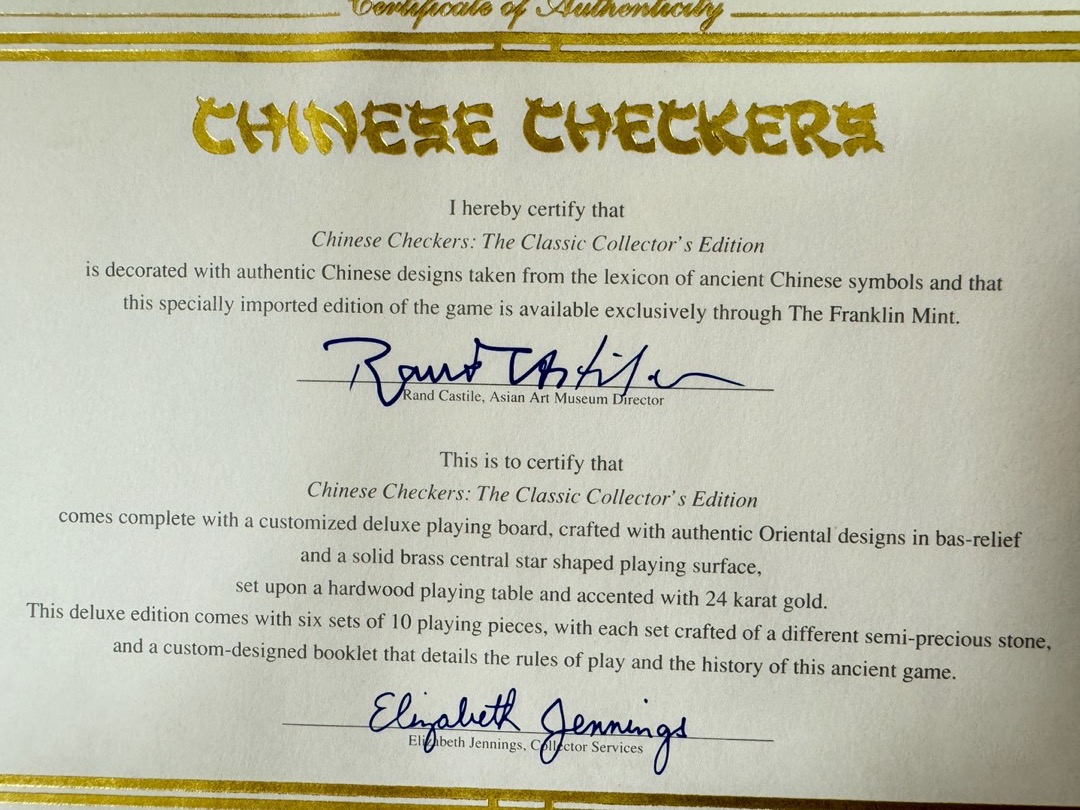 Certificate of Authenticity
CHINESE CHECKERS
I hereby certify that
Chinese Checkers: The Classic Collector's Edition
is decorated with authentic Chinese designs taken from the lexicon of ancient Chinese symbols and that
this specially imported edition of the game is available exclusively through The Franklin Mint.
Rand Castile
Rand Castile, Asian Art Museum Director
This is to certify that
Chinese Checkers: The Classic Collector's Edition
comes complete with a customized deluxe playing board, crafted with authentic Oriental designs in bas-relief
and a solid brass central star shaped playing surface,
set upon a hardwood playing table and accented with 24 karat gold.
This deluxe edition comes with six sets of 10 playing pieces, with each set crafted of a different semi-precious stone,
and a custom-designed booklet that details the rules of play and the history of this ancient game.
Elizabeth Jennings
Elizabeth Jennings, Collector Services